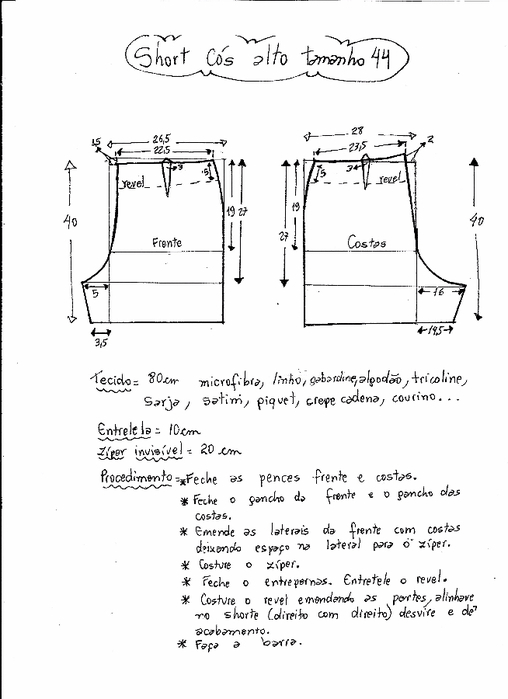 Short cós alto tamanho 44
26,5
22,5
1,5
3
5
revel
40
19
27
Frente
5
3,5
28
23,5
2
5
3
revel
19
27
40
Costas
16
14,5
Tecido = 80cm microfibra, linho, gabardine, algodão, tricoline,
sarja, satim, piquet, crepe cadena, courino...
Entretela = 10cm
Zíper invisível = 20 cm
Procedimento = *Feche as pences frente e costas.
* Feche o gancho da frente e o gancho das
costas.
* Emende as laterais da frente com costas
deixando espaço na lateral para o zíper.
* Costure o zíper.
* Feche o entrepernas. Entretele o revel.
* Costure o revel emendando as partes, alinhave
no shorte (direito com direito) desvire e dê
acabamento.
* Faça a barra.